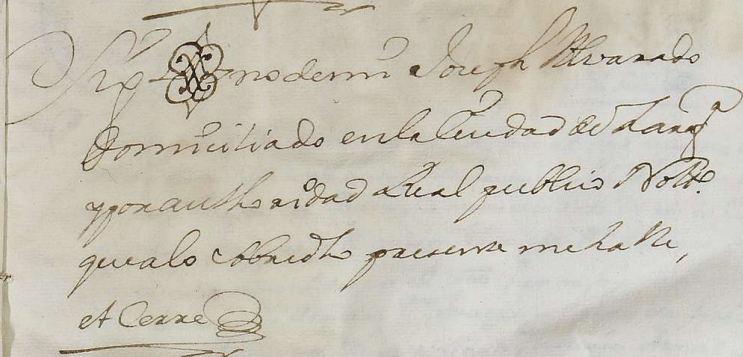 Sig no de mi Joseph Alvarado
Domiciliado en la Ciudad de Zarag.ª
y por authoridad Real publico Nott.º
que a lo sobre dho presente me halle,
et Cerre